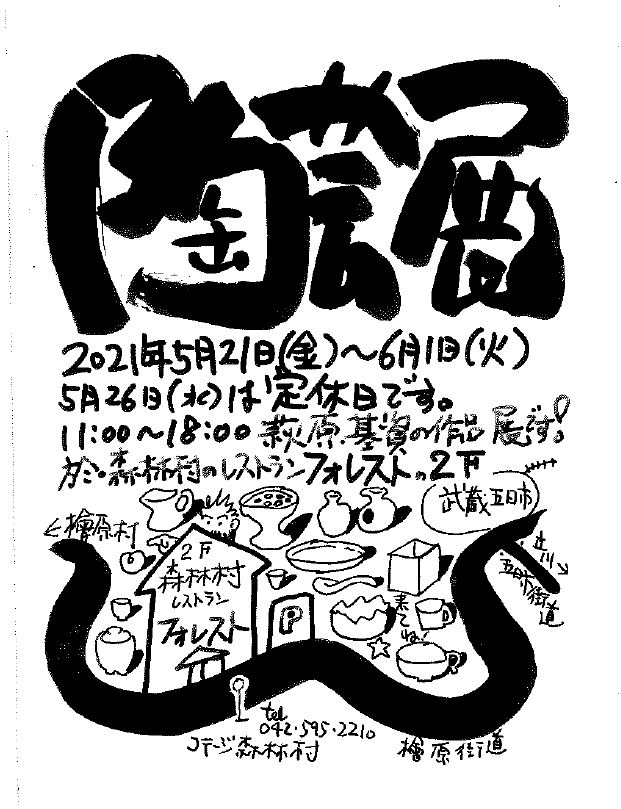 陶芸展
2021年5月21日(金)〜6月1日(火)
5月26日(水)は定休日です。
11:00〜18:00 萩原基資の作品展です!
森林村のレストランフォレストの2F
武蔵五日市
←檜原村
立川→
五日市街道
2F
森林村
レストラン
フォレスト
P
来てね!
tel
042・595・2210
コテージ森林村
檜原街道